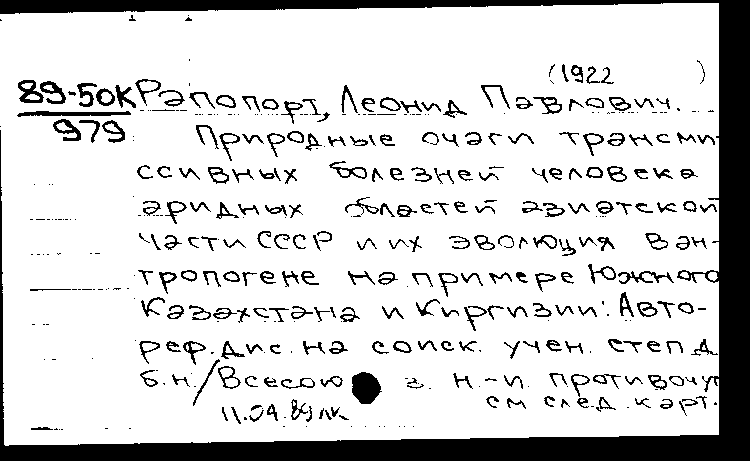 (1922 )
89-50К Рапопорт, Леонид Павлович.
979 Природные очаги трансми-
ссивных болезней человека
аридных областей азиатской
части СССР и их эволюция в ан-
тропогене на примере Южного
Казахстана и Киргизии: Авто-
реф. дис. на соиск. учен. степ. д.
б.н. / Всесоюз. н.-и. противочу
11.04.89 лк см след. карт.